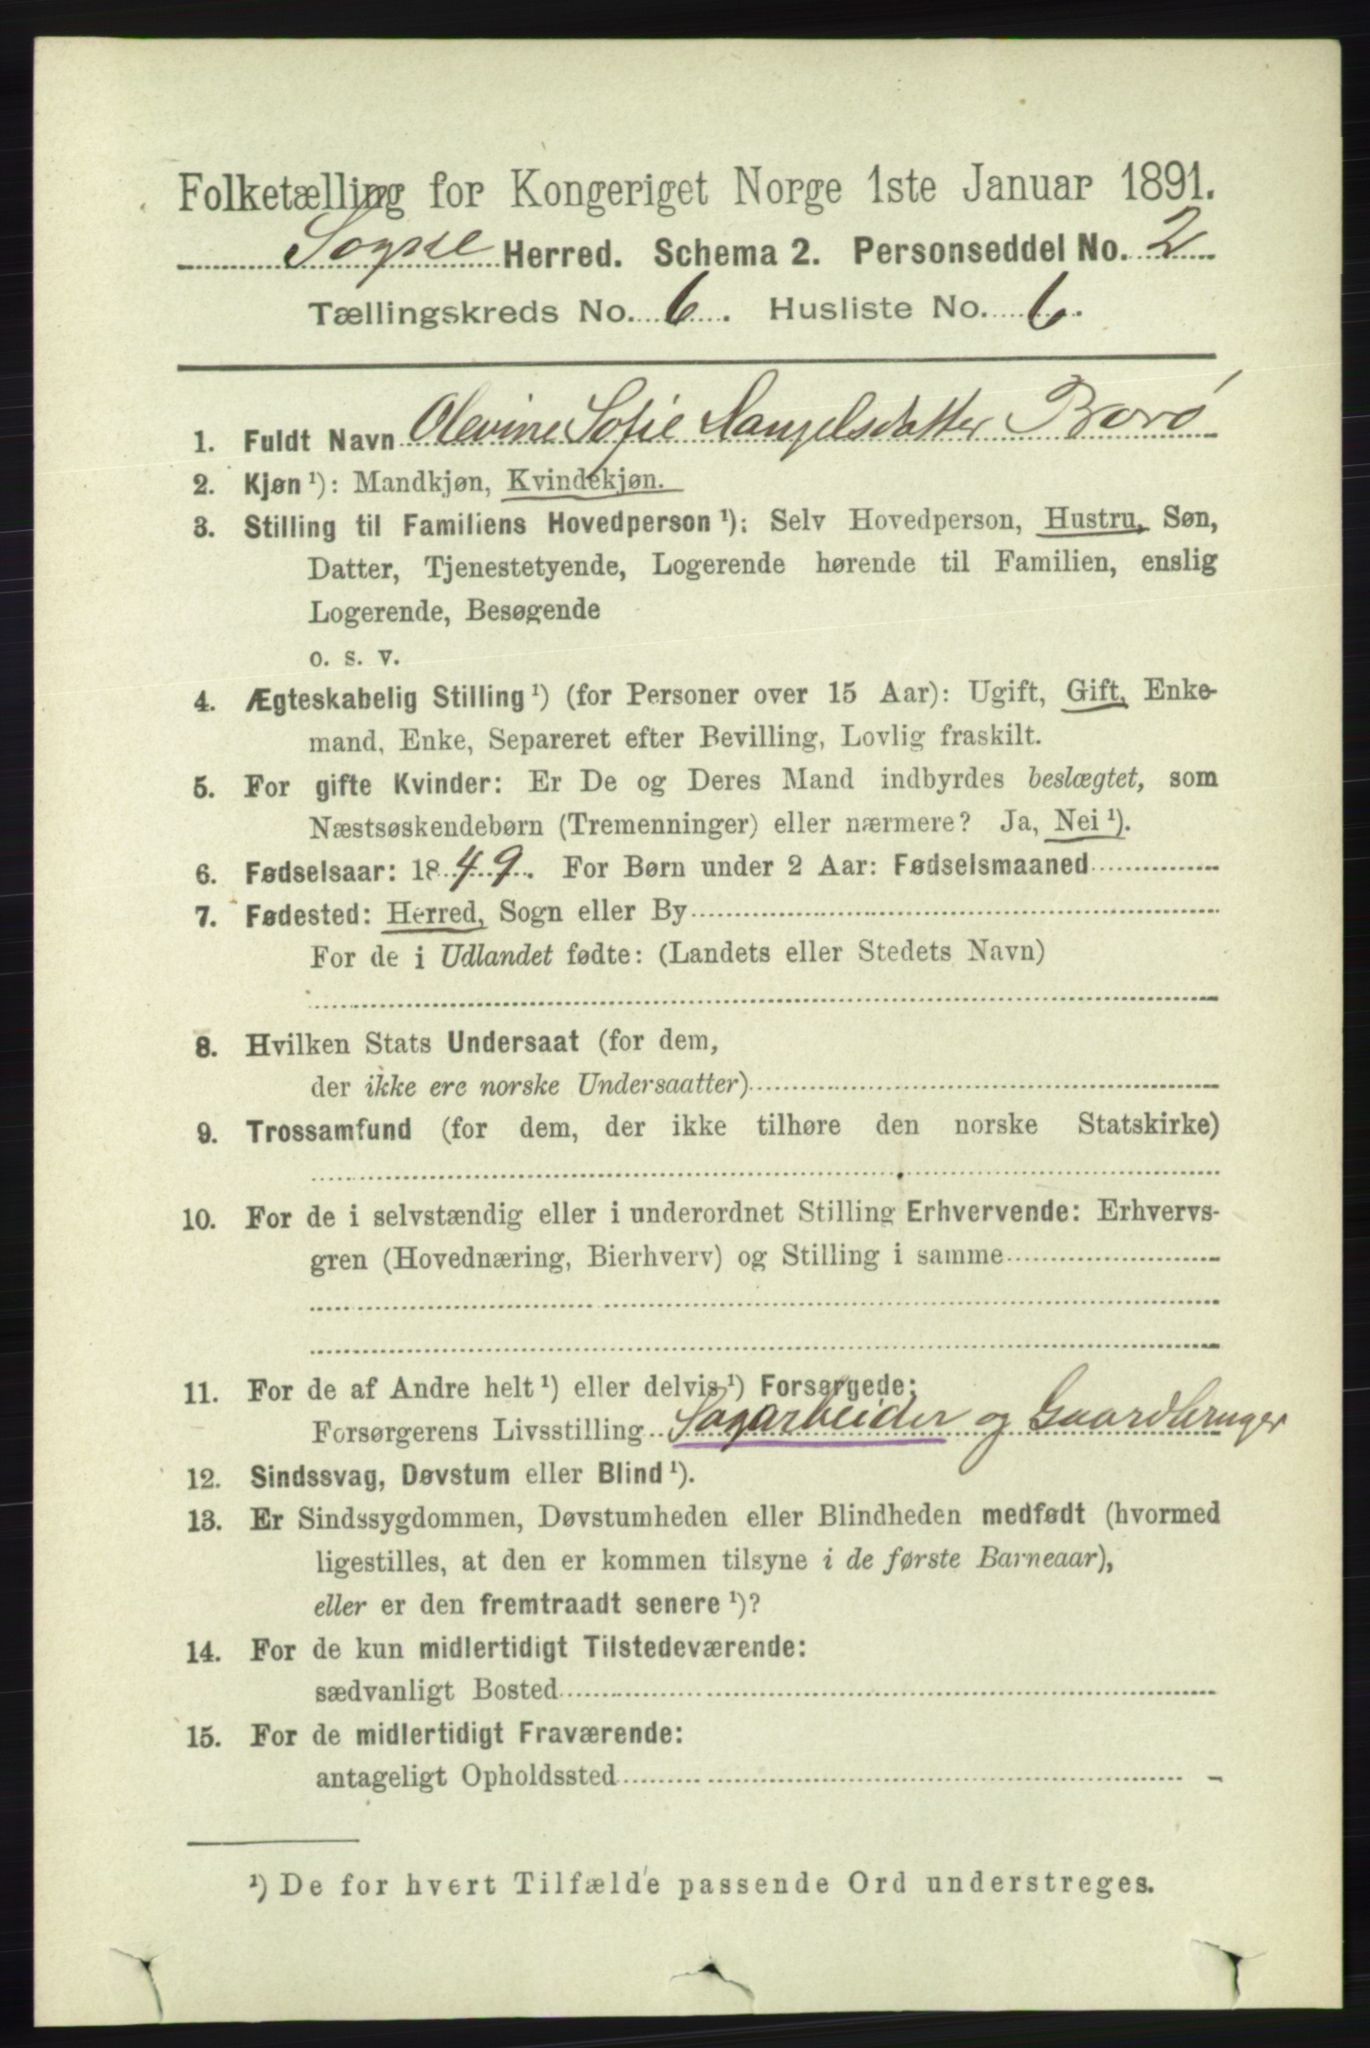 Folketælling for Kongeriget Norge 1ste Januar 1891.
Sogne Herred. Schema 2. Personseddel No. 2
Tællingskreds No. 6. Husliste No. 6.
1. Fuldt Navn Olevine Sofie Mangelsdatter Borø
2. Kjøn ¹): Mandkjøn, Kvindekjøn.
3. Stilling til Familiens Hovedperson ¹): Selv Hovedperson, Hustru, Søn,
Datter, Tjenestetyende, Logerende hørende til Familien, enslig
Logerende, Besøgende
o. s. v.
4. Ægteskabelig Stilling ¹) (for Personer over 15 Aar): Ugift, Gift, Enke-
mand, Enke, Separeret efter Bevilling, Lovlig fraskilt.
5. For gifte Kvinder: Er De og Deres Mand indbyrdes beslægtet, som
Næstsøskendebørn (Tremenninger) eller nærmere? Ja, Nei ¹).
6. Fødselsaar: 1849. For Børn under 2 Aar: Fødselsmaaned
7. Fødested: Herred, Sogn eller By
For de i Udlandet fødte: (Landets eller Stedets Navn)
8. Hvilken Stats Undersaat (for dem,
der ikke ere norske Undersaatter)
9. Trossamfund (for dem, der ikke tilhøre den norske Statskirke)
10. For de i selvstændig eller i underordnet Stilling Erhvervende: Erhvervs-
gren (Hovednæring, Bierhverv) og Stilling i samme
11. For de af Andre helt ¹) eller delvis ¹) Forsørgede:
Forsørgerens Livsstilling Sagarbeider og Gaardbruger
12. Sindssvag, Døvstum eller Blind ¹).
13. Er Sindssygdommen, Døvstumheden eller Blindheden medfødt (hvormed
ligestilles, at den er kommen tilsyne i de første Barneaar),
eller er den fremtraadt senere ¹)?
14. For de kun midlertidigt Tilstedeværende:
sædvanligt Bosted
15. For de midlertidigt Fraværende:
antageligt Opholdssted
¹) De for hvert Tilfælde passende Ord understreges.